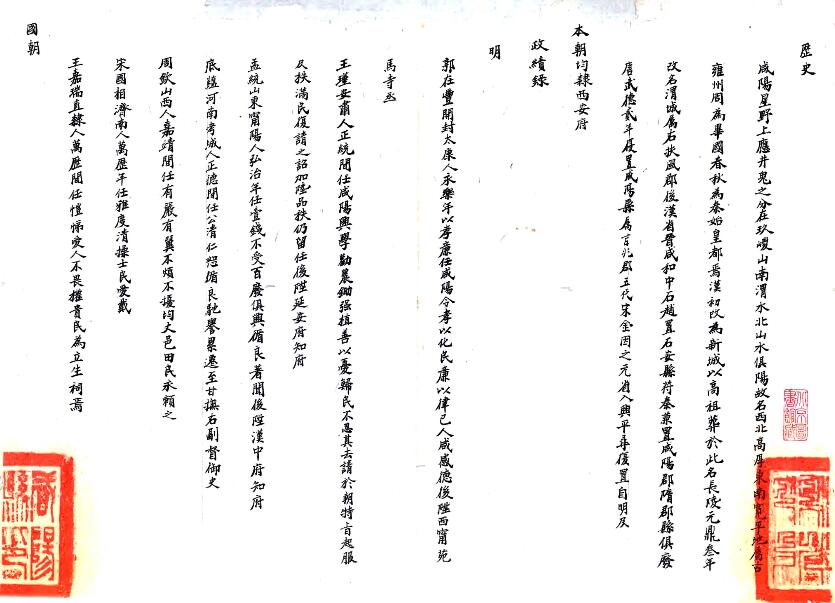 歷史
咸陽星野上應井鬼之分在玖嵕山南渭水北山水俱陽故名西北高厚東南寬平地屬古
雍州周為畢國春秋為秦始皇都焉漢初改為新城以高祖葬於此名長陵元鼎叁年
改名渭城屬右扶風郡後漢省晉咸和中石趙置石安縣苻秦兼置咸陽郡隋郡縣俱廢
唐武德貳年復置咸陽縣屬京兆郡五代宋金因之元省入興平尋復置自明及
本朝均隸西安府
政績錄
明
郭在豐開封太康人永樂年以孝廉任咸陽令孝以化民廉以律已人咸感德後陞西甯苑
馬寺丞
王瑾安肅人正統間任咸陽興學勸農鋤强植善以憂歸民不忍其去請於朝特旨起服
及秩滿民復請之詔加陞品秩仍留任後陞延安府知府
孟統山東甯陽人弘治年任壹錢不受百廢俱興循良著聞後陞漢中府知府
底蘊河南考城人正德間任公清仁恕循良馳譽累遷至甘撫右副督御史
周欽山西人嘉靖間任有嚴有翼不煩不擾均丈邑田民永賴之
宋國相濟南人萬歷年任雅度清操士民愛戴
王嘉瑞直隸人萬歷間任愷悌愛人不畏權貴民為立生祠焉
國朝